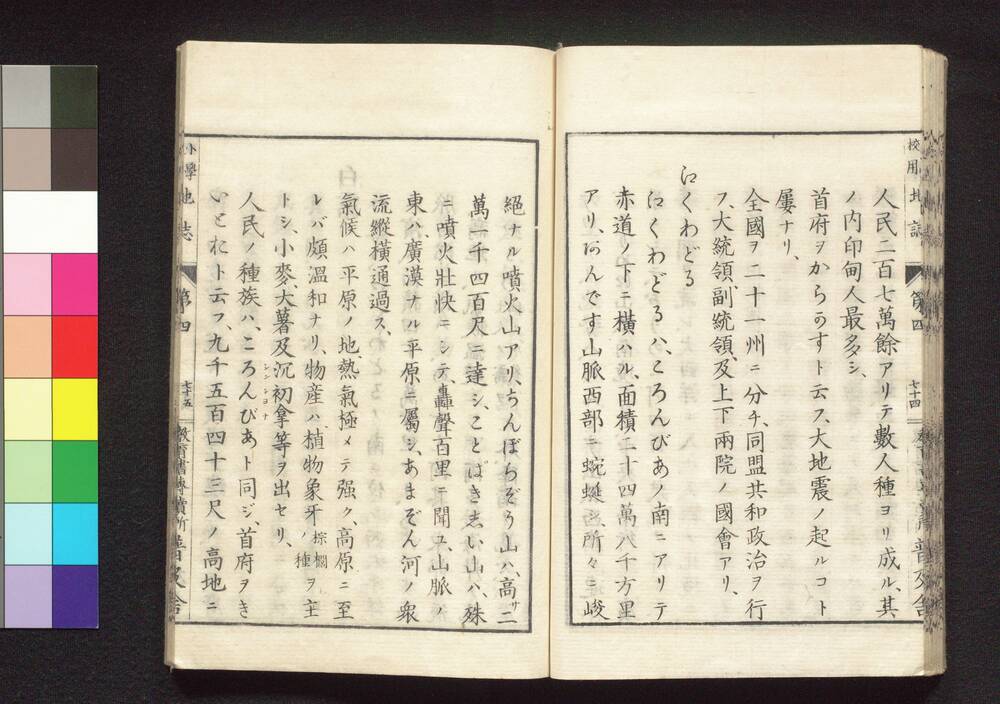 校用地誌
第四
七十四
人民二百七萬餘アリテ數人種ヨリ成ル、其
ノ内印甸人最多シ、
首府ヲからかすト云フ、大地震ノ起ルコト
屢ナリ、
全國ヲ二十一州ニ分チ、同盟共和政治ヲ行
フ、大統領、副統領、及上下兩院ノ國會アリ、
江くわどる
江くわどるハ、ころんびあノ南ニアリテ
赤道ノ下ニ横ハル、面積二十四萬八千方里
アリ、あんです山脈西部ニ蜿蜒シ、所々ニ峻
絕ナル噴火山アリ、ちんぼらぞう山ハ、高サ二
萬一千四百尺ニ達シ、ことぱきしい山ハ、殊
ニ噴火壯快ニシテ、轟聲百里ニ聞ユ、山脈ノ
東ハ、廣漠ナル平原ニ屬シ、あまぞん河ノ衆
流縱橫通過ス、
氣候ハ平原ノ地熱氣極メテ强ク、高原ニ至
レバ頗溫和ナリ、物産ハ植物象牙棕櫚ノ種ヲ主
トシ、小麥、大薯及沉初拿等ヲ出セリ、
シンシヨナ
人民ノ種族ハ、ころんびあト同ジ、首府ヲき
いとおト云フ、九千五百四十三尺ノ高地ニ
小學地誌
第四
七十五
教育書專賣所普及舎